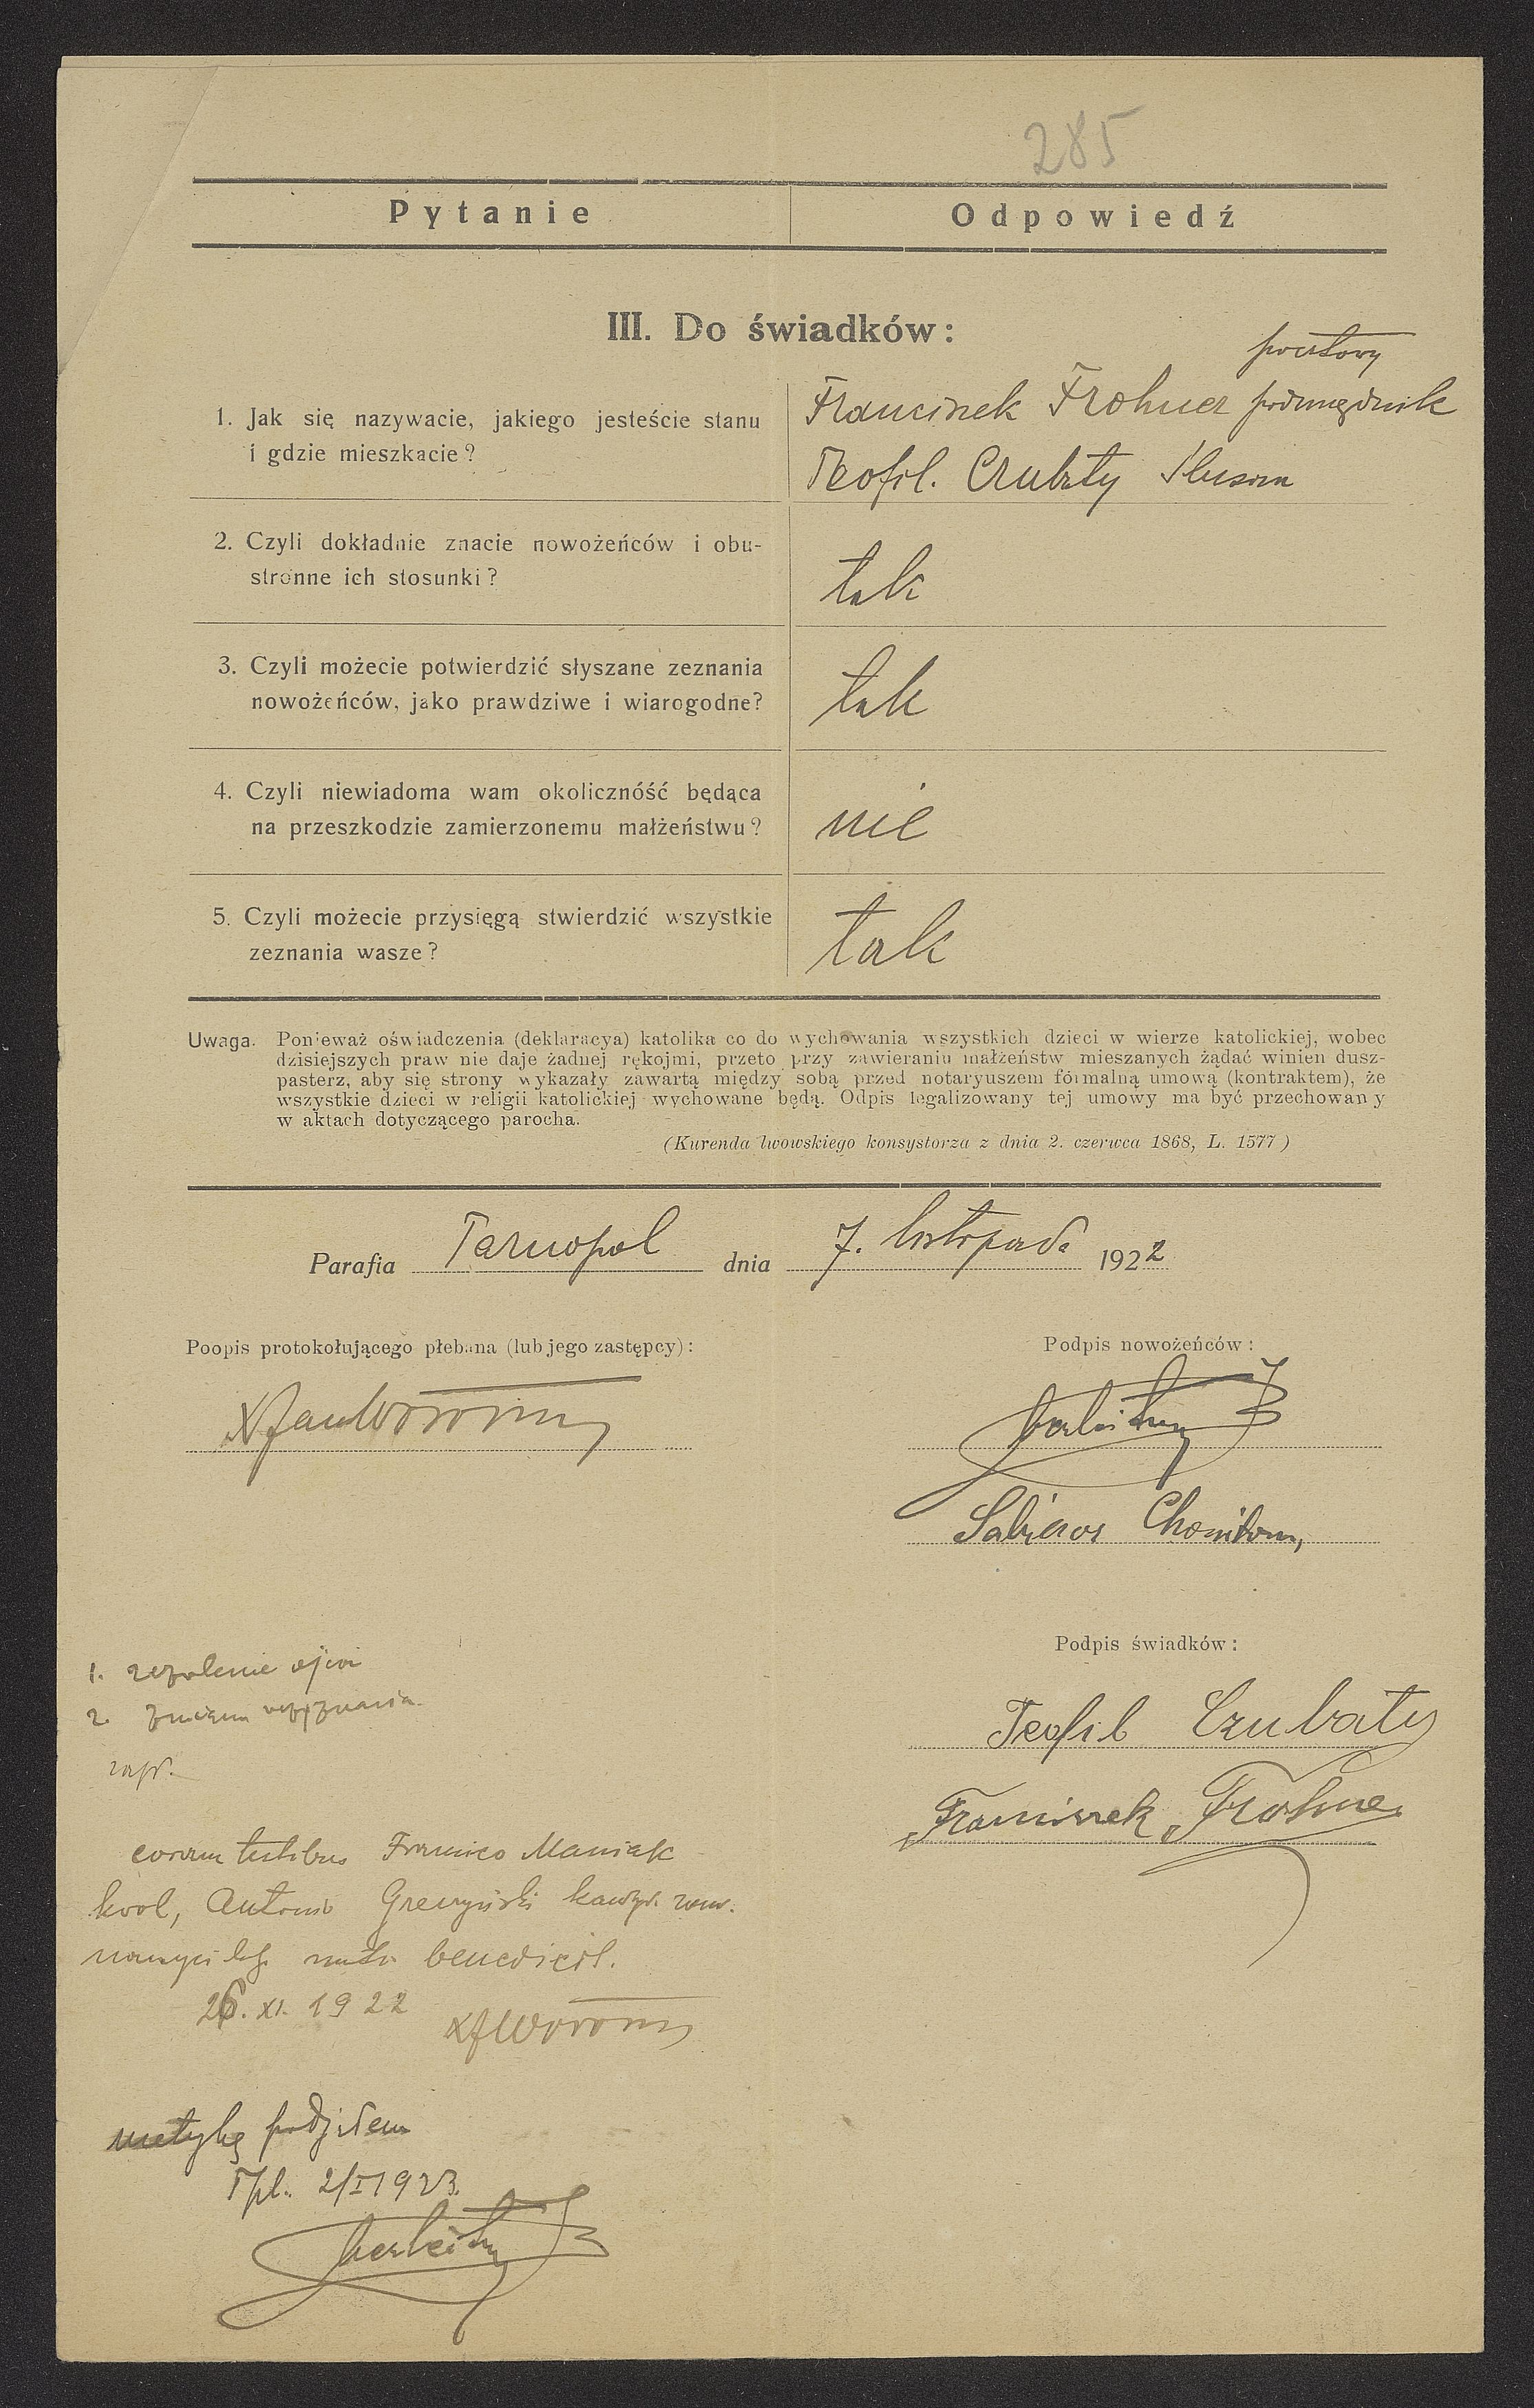 285
Pytanie
Odpowiedź
III. Do świadków:
1. Jak się nazywacie, jakiego jesteście stanu
i gdzie mieszkacie?
pocztowy
Franciszek Frohner podurzędnik
Teofil. Czubaty
2. Czyli dokładnie znacie nowożeńców i obu-
stronne ich stosunki?
tak
3. Czyli możecie potwierdzić słyszane zeznania
nowożeńców, jako prawdziwe i wiarogodne?
tak
4. Czyli niewiadoma wam okoliczność będąca
na przeszkodzie zamierzonemu małżeństwu?
nie
5. Czyli możecie przysięgą stwierdzić wszystkie
zeznania wasze?
tak
Uwaga. Ponieważ oświadczenia (deklaracya) katolika co do wychowania wszystkich dzieci w wierze katolickiej, wobec
dzisiejszych praw nie daje żadnej rękojmi, przeto przy zawieraniu małżeństw mieszanych żądać winien dusz-
pasterz, aby się strony wykazały zawartą między sobą przed notaryuszem formalną umową (kontraktem), że
wszystkie dzieci w religii katolickiej wychowane będą. Odpis legalizowany tej umowy ma być przechowany
w aktach dotyczącego parocha.
(Kurenda lwowskiego konsystorza z dnia 2. czerwca 1868, L. 1577)
Parafia Tarnopol dnia 7. listopada 1922
Poopis protokołującego plebana (lub jego zastępcy):
Podpis nowożeńców:
Podpis świadków:
1. zezwolenie ojca
2. zmiana wyznania
zap.
Teofil Czubaty
Franciszek Frohner
coram testibus Franisco Maniak
kool, Antonio
benedixit.
26. XI. 1922
metrykę podjąłem
Tpl. 2/I 1923.